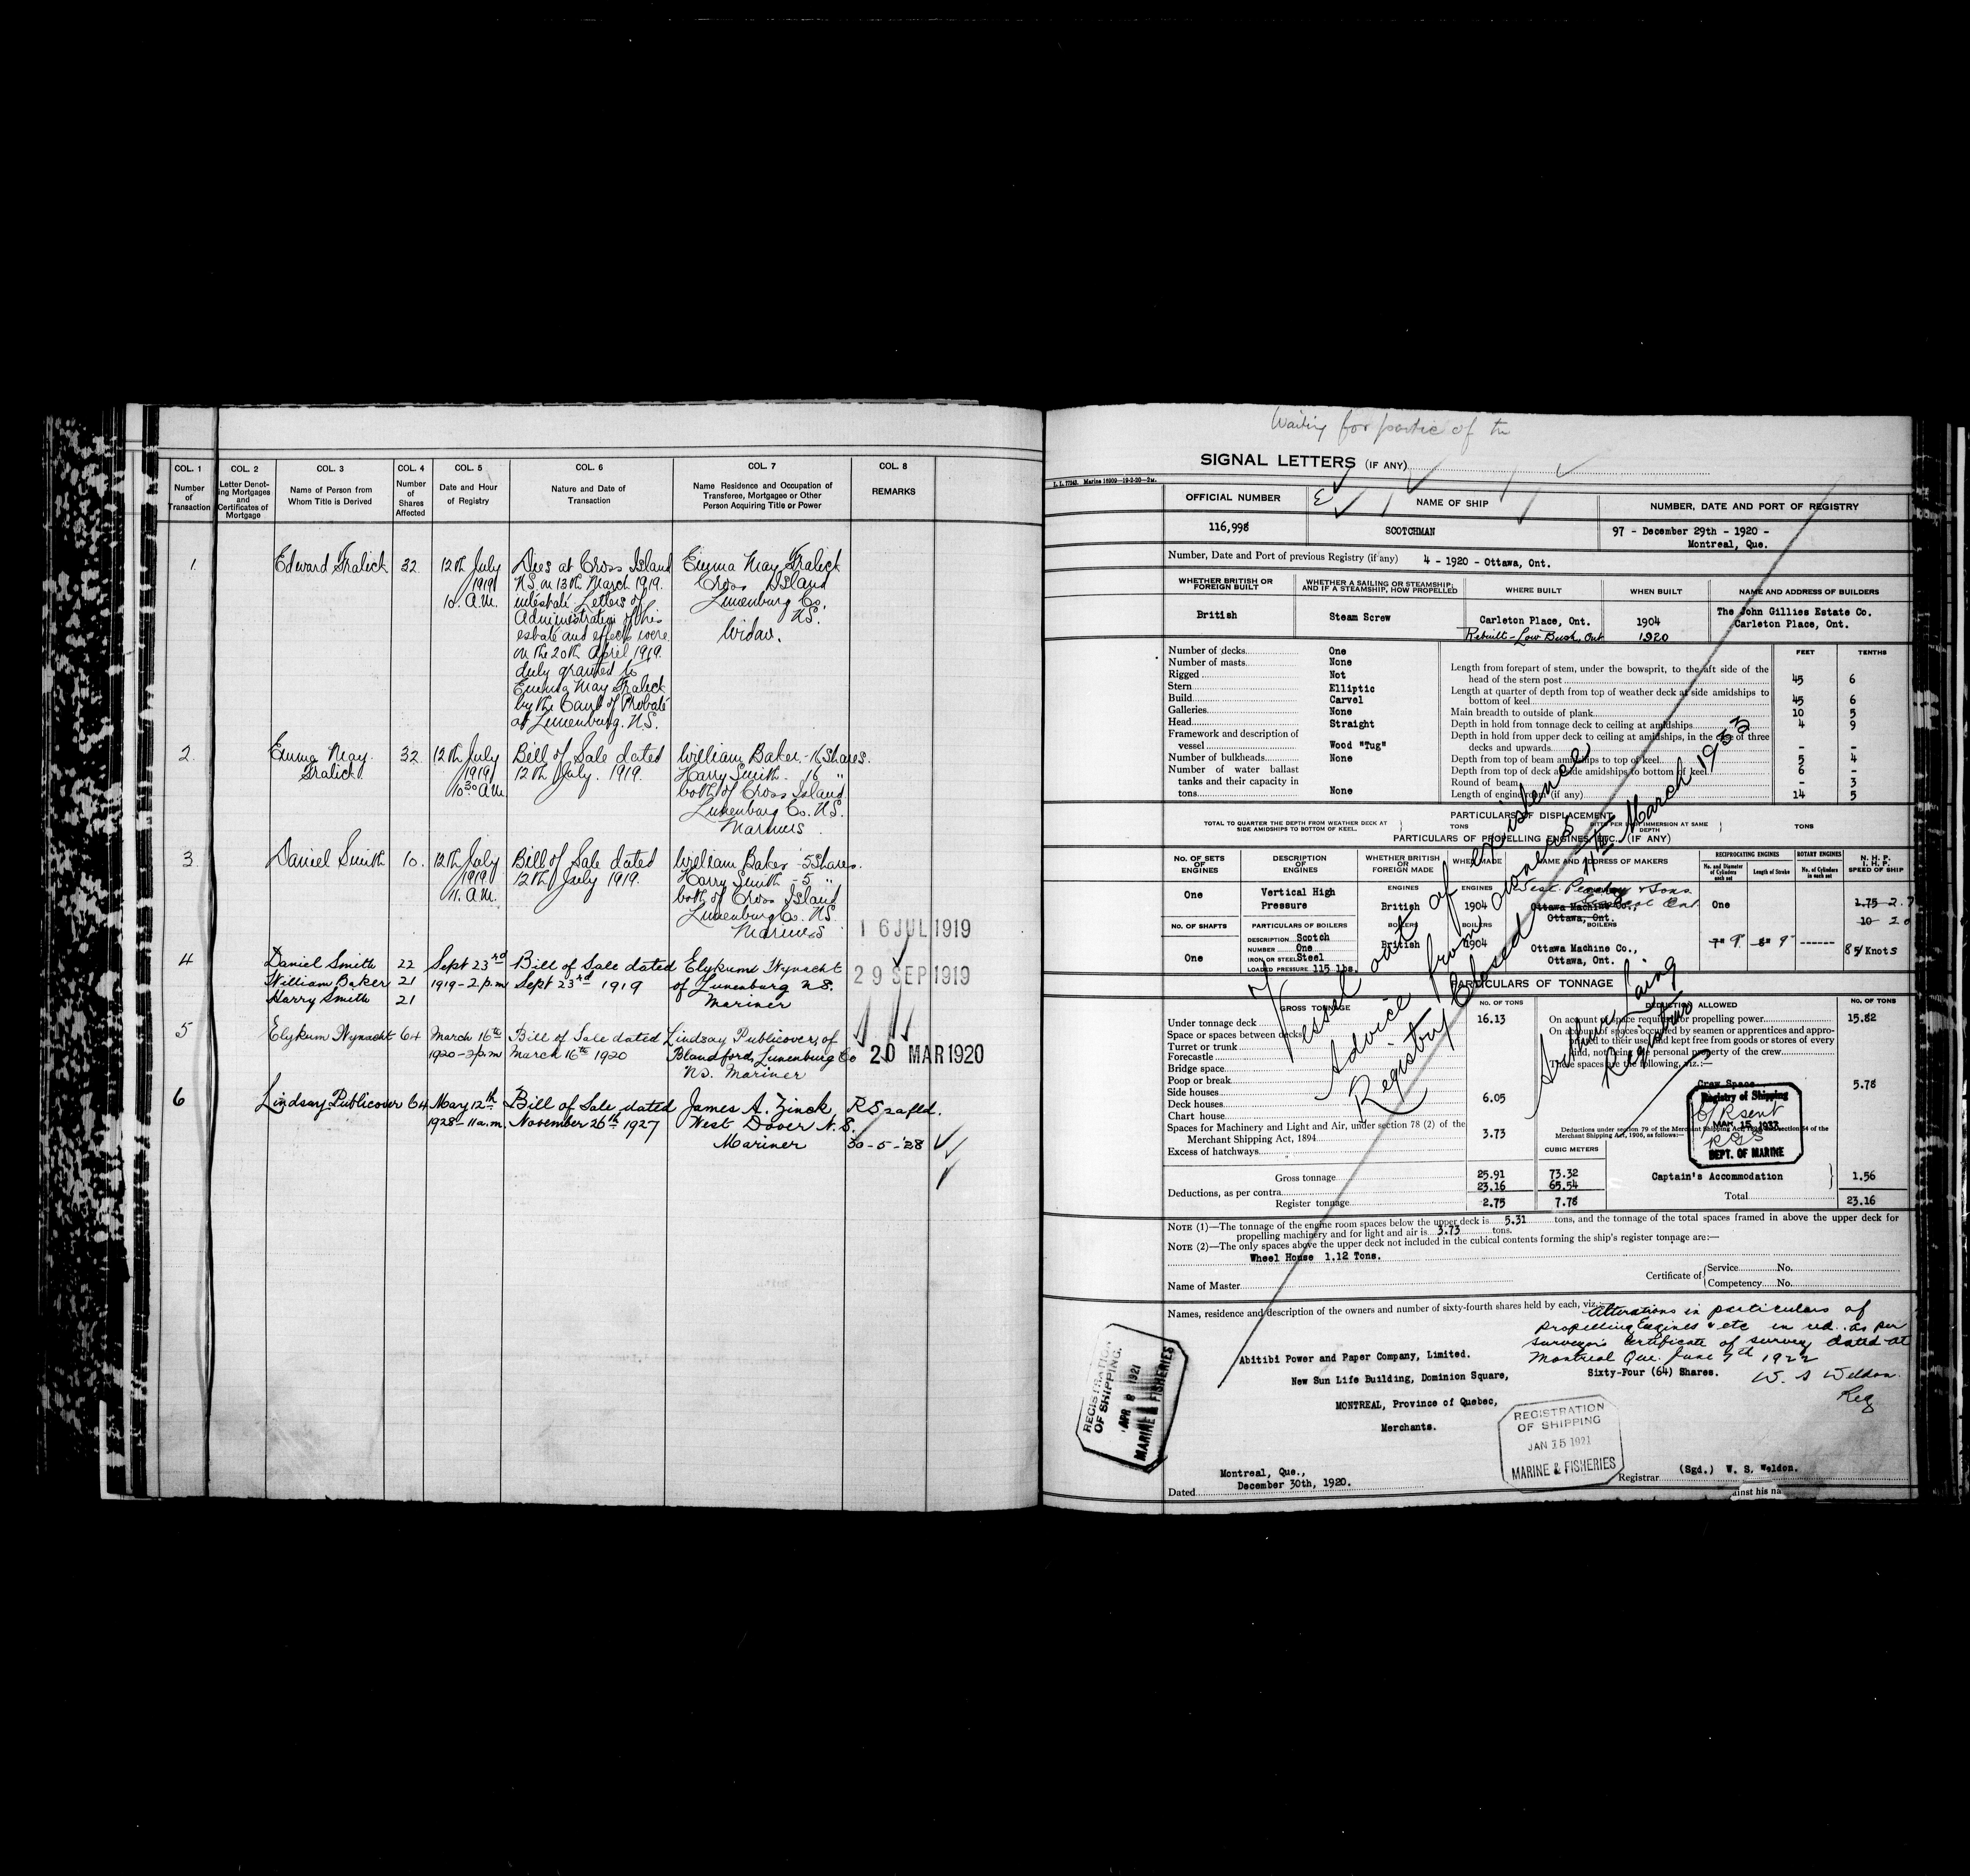 COL. 1
Number
of
Transaction
COL. 2
Letter Denot-
ing Mortgages
and
Certificates of
Mortgage
COL. 3
Name of Person from
Whom Title is Derived
COL. 4
Number
of
Shares
Affected
COL. 5
Date and Hour
of Registry
COL. 6
Nature and Date of
Transaction
COL. 7
Name Residence and Occupation of
Transferee, Mortgagee or Other
Person Acquiring Title or Power
COL. 8
REMARKS
1.
Edward Gralick
32
12th July
1919
10. A.M.
Dies at Cross Island
N.S. on 13th March 1919.
intestate Letters of
Administration of his
estate and effects were
on the 20th April 1919.
duly granted to
Emma May Gralick
by the Court of Probate
at Lunenburg. N.S.
Emma May Gralick
Cross Island
Lunenburg Co.
N.S.
Widow.
2.
Emma May
Gralick
32
12th July
1919
10.30 A.M.
Bill of Sale dated
12th July. 1919.
William Baker - 16 Shares.
Harry Smith - 16 "
both of Cross Island
Lunenburg Co. N.S.
Mariners
3.
Daniel Smith
10.
12th July
1919
11. A.M.
Bill of Sale dated
12th July 1919.
William Baker - 5 Shares.
Harry Smith - 5 "
both of Cross Island
Lunenburg Co. N.S.
Mariners
16 JUL 1919
4
Daniel Smith 22
William Baker 21
Harry Smith 21
Sept 23rd
1919 - 2 p.m
Bill of Sale dated
Sept 23rd 1919
Elykum Wynacht
of Lunenburg N.S.
Mariner
29 SEP 1919
5
Elykum Wynacht 64
March 16th
1920 - 2 p.m
Bill of Sale dated
March 16th 1920
Lindsay Publicover, of
Blandford, Lunenburg Co
N.S. Mariner
20 MAR 1920
6
Lindsay Publicover 64
May 12th
1928 - 11 a.m.
Bill of Sale dated
November 26th 1927
James A. Zinck
West Dover N.S.
Mariner
30-5-'28
Waiting for
SIGNAL LETTERS (IF ANY)
L. L. 77243. Marine 16909—19-2-20—2M.
OFFICIAL NUMBER
NAME OF SHIP
NUMBER, DATE AND PORT OF REGISTRY
116,998
SCOTCHMAN
97 - December 29th - 1920 -
Montreal, Que.
Number, Date and Port of previous Registry (if any) 4 - 1920 - Ottawa, Ont.
WHETHER BRITISH OR
FOREIGN BUILT
WHETHER A SAILING OR STEAMSHIP;
AND IF A STEAMSHIP, HOW PROPELLED
WHERE BUILT
WHEN BUILT
NAME AND ADDRESS OF BUILDERS
British
Steam Screw
Carleton Place, Ont.
Rebuilt - Low Bush, Ont
1904
1920
The John Gillies Estate Co.
Carleton Place, Ont.
Number of decks One
Number of masts None
Rigged Not
Stern Elliptic
Build Carvel
Galleries None
Head Straight
Framework and description of
vessel Wood "Tug"
Number of bulkheads None
Number of water ballast
tanks and their capacity in
tons None
FEET TENTHS
Length from forepart of stem, under the bowsprit, to the aft side of the
head of the stern post 45 6
Length at quarter of depth from top of weather deck at side amidships to
bottom of keel 45 6
Main breadth to outside of plank 10 5
Depth in hold from tonnage deck to ceiling at amidships 4 9
Depth in hold from upper deck to ceiling at amidships, in the case of three
decks and upwards - -
Depth from top of beam amidships to top of keel 5 4
Depth from top of deck at side amidships to bottom of keel 6 -
Round of beam - 3
Length of engine room (if any) 14 5
PARTICULARS OF DISPLACEMENT
TOTAL TO QUARTER THE DEPTH FROM WEATHER DECK AT
SIDE AMIDSHIPS TO BOTTOM OF KEEL.
TONS
DITTO PER INCH IMMERSION AT SAME
DEPTH
TONS
PARTICULARS OF PROPELLING ENGINES, ETC., (IF ANY)
No. OF SETS
OF
ENGINES
DESCRIPTION
OF
ENGINES
WHETHER BRITISH
OR
FOREIGN MADE
WHEN MADE
NAME AND ADDRESS OF MAKERS
RECIPROCATING ENGINES
No. and Diameter
of Cylinders
each set
Length of Stroke
ROTARY ENGINES
No. of Cylinders
in each set
N. H. P.
I. H. P.
SPEED OF SHIP
One
Vertical High
Pressure
ENGINES
British
ENGINES
1904
West Peachey & Sons
Ottawa Machine Co.,
Ottawa, Ont.
One
1.75 2.7
10 20
No. OF SHAFTS
PARTICULARS OF BOILERS
BOILERS
BOILERS
BOILERS
One
DESCRIPTION Scotch
NUMBER One
IRON OR STEEL Steel
LOADED PRESSURE 115 lbs.
British
1904
Ottawa Machine Co.,
Ottawa, Ont.
7" 9" 8" 9"
8 Knots
PARTICULARS OF TONNAGE
GROSS TONNAGE
No. OF TONS
DEDUCTION ALLOWED
No. OF TONS
Under tonnage deck 16.13
Space or spaces between decks
Turret or trunk
Forecastle
Bridge space
Poop or break
Side houses
Deck houses 6.05
Chart house
Spaces for Machinery and Light and Air, under section 78 (2) of the
Merchant Shipping Act, 1894 3.73
Excess of hatchways
On account of space required for propelling power 15.82
On account of spaces occupied by seamen or apprentices and appro-
priated to their use, and kept free from goods or stores of every
kind, not being the personal property of the crew
These spaces are the following, viz.:—
Crew Space 5.78
Registry of Shipping
MAR 15 1933
DEPT. OF MARINE
Deductions under section 79 of the Merchant Shipping Act, 1894, and section 54 of the
Merchant Shipping Act, 1906, as follows:—
CUBIC METERS
Gross tonnage 25.91 73.32
Deductions, as per contra 23.16 65.54
Register tonnage 2.75 7.78
Captain's Accommodation 1.56
Total 23.16
Vessel out of existence
Advice from owners
Registry Closed 11th March 1933
Arthur Laing
Registrar
NOTE (1)—The tonnage of the engine room spaces below the upper deck is 5.31 tons, and the tonnage of the total spaces framed in above the upper deck for
propelling machinery and for light and air is 3.73 tons.
NOTE (2)—The only spaces above the upper deck not included in the cubical contents forming the ship's register tonnage are:—
Wheel House 1.12 Tons.
Name of Master
Certificate of
Service No.
Competency No.
Names, residence and description of the owners and number of sixty-fourth shares held by each, viz.:—
Alterations in particulars of
propelling Engines & etc in red. as per
surveyors Certificate of survey dated at
Montreal Que. June 7th 1922
W. S Weldon
Reg
Abitibi Power and Paper Company, Limited.
New Sun Life Building, Dominion Square,
MONTREAL, Province of Quebec,
Merchants.
Sixty-Four (64) Shares.
REGISTRATION
OF SHIPPING.
APR 8 1921
MARINE & FISHERIES
REGISTRATION
OF SHIPPING
JAN 15 1921
MARINE & FISHERIES
Montreal, Que.,
Dated December 30th, 1920.
Registrar (Sgd.) W. S. Weldon.
ainst his na